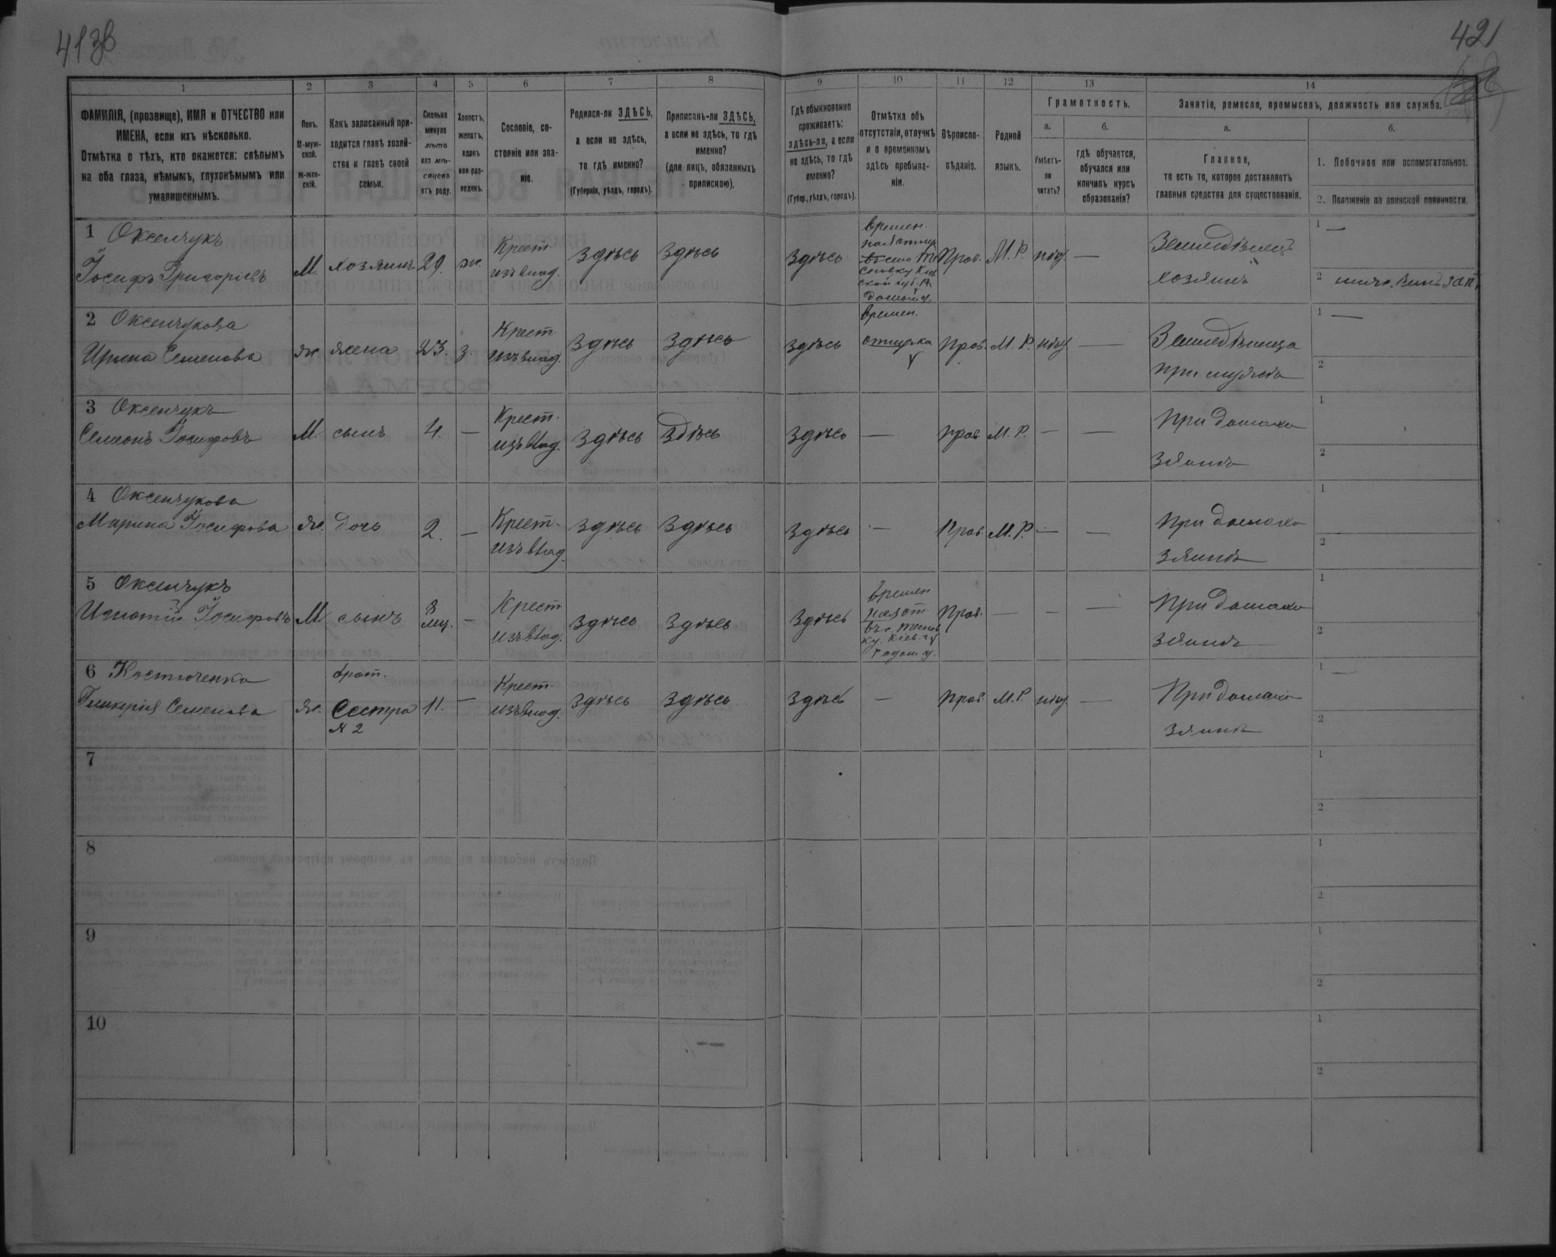 421
1
2
3
4
5
6
7
8
ФАМИЛІЯ, (прозвище), ИМЯ и ОТЧЕСТВО или
ИМЕНА, если ихъ нѣсколько.
Отмѣтка о тѣхъ, кто окажется: слѣпымъ
на оба глаза, нѣмымъ, глухонѣмымъ или
умалишеннымъ.
Полъ.
М-муж-
ской.
Ж-жен-
скій.
Какъ записанный при-
ходится главѣ хозяй-
ства и главѣ своей
семьи.
Сколько
минуло
лѣтъ
или мѣ-
сяцевъ
отъ роду.
Холостъ,
женатъ,
вдовъ
или раз-
веденъ.
Сословіе, со-
стояніе или зва-
ніе.
Родился-ли ЗДѢСЬ,
а если не здѣсь,
то гдѣ именно?
(Губернія, уѣздъ, городъ).
Приписанъ-ли ЗДѢСЬ,
а если не здѣсь, то гдѣ
именно?
(для лицъ, обязанныхъ
припискою).
9
10
11
12
13
14
Гдѣ обыкновенно
проживаетъ:
здѣсь-ли, а если
не здѣсь, то гдѣ
именно?
(Губер., уѣздъ, городъ).
Отмѣтка объ
отсутствіи, отлучкѣ
и о временномъ
здѣсь пребыва-
ніи.
Вѣроиспо-
вѣданіе.
Родной
языкъ.
Грамотность.
а.
б.
Умѣетъ-
ли
читать?
гдѣ обучается,
обучался или
кончилъ курсъ
образованія?
Занятіе, ремесло, промыселъ, должность или служба.
а.
б.
Главное,
то есть то, которое доставляетъ
главныя средства для существованія.
1. Побочное или вспомогательное.
2. Положеніе по воинской повинности.
1 Оксенчукъ
Іосифъ Григорьевъ
М
хозяинъ
29.
ж
Крест.
изъ влад.
Здѣсь
Здѣсь
Здѣсь
времен.
Прав.
М. Р.
нѣт
—
Земледѣлецъ
хозяинъ
1 —
2
2 Оксенчукова
Ирина Семенова
ж.
жена
23.
з.
Крест
изъ влад.
Здѣсь
Здѣсь
Здѣсь
времен.
отлучка
Прав
М. Р.
нѣт
—
Земледѣлица
при мужѣ
1 —
2
3 Оксенчукъ
Семенъ Іосифовъ
М
сынъ
4.
—
Крест.
изъ влад.
Здѣсь
Здѣсь
Здѣсь
—
Прав
М. Р.
—
—
При домохо
зяинѣ
1
2
4 Оксенчукова
Марина Іосифова
ж.
дочь
2.
—
Крест.
изъ влад.
Здѣсь
Здѣсь
Здѣсь
—
Прав.
М. Р.
—
—
При домохо
зяинѣ
1
2
5 Оксенчукъ
Игнатій Іосифовъ
М
сынъ
8
мц.
—
Крест
изъ влад.
Здѣсь
Здѣсь
Здѣсь
времен
Прав.
—
—
—
При домохо
зяинѣ
1
2
6 Костюченко
Гликерія Семенова
ж.
Сестра
№ 2
11.
—
Крест
изъ влад.
Здѣсь
Здѣсь
Здѣсь
—
Прав.
М. Р.
нѣт
—
При домохо
зяинѣ
1 —
2
7
1
2
8
1
2
9
1
2
10
1
2